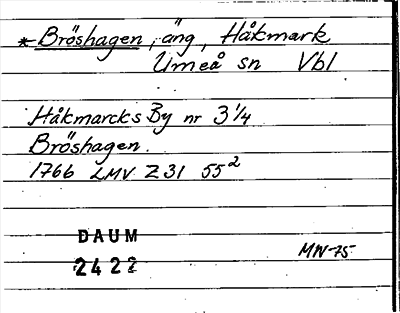 *Bröshagen, äng, Håkmark
Umeå sn Vbl
Håkmarcks By nr 3 1/4
Bröshagen.
1766 LMV Z 31 55²
DAUM
2422
MW-75